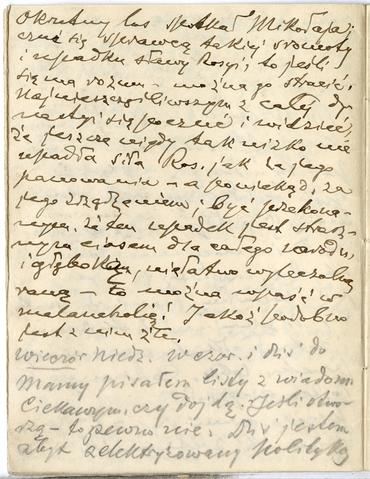 Okrutny los spotkał Mikołaja;
czuć się sprawcą takiej sromoty
i upadku sławy Rosyi, to jeśli
się ma rozum – można go stracić,
Najnieszczęśliwszym z całej dy-
nastyi się poczuć i widzieć,
że jeszcze nigdy tak nizko nie
upadła siła Ros. jak za jego
panowania – a poniekąd, za
jego zrządzeniem; być przekona-
nym, że ten upadek jest strasz-
nym ciosem dla całego narodu,
i głęboką, niełatwo wyleczalną
raną – to można wpaść w
melancholię! Jakoż podobno
jest z nim źle.
wieczór niedz. wczor. i dziś do
Mamy pisałem listy z wiadom
ciekawym, czy dojdą. Jeśli otwo-
rzą – to pewno nie. Dziś jestem
zbyt zelektryzowany polityką